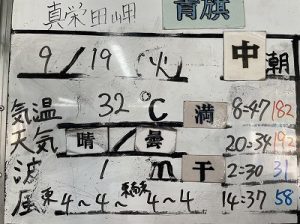 真栄田岬 青旗
9/19(火) 中潮
気温 32℃ 満 8:47 182
天気 晴/曇 20:34 192
波 1m 干 2:30 31
風 東4〜4〜東南東4〜4 14:37 58